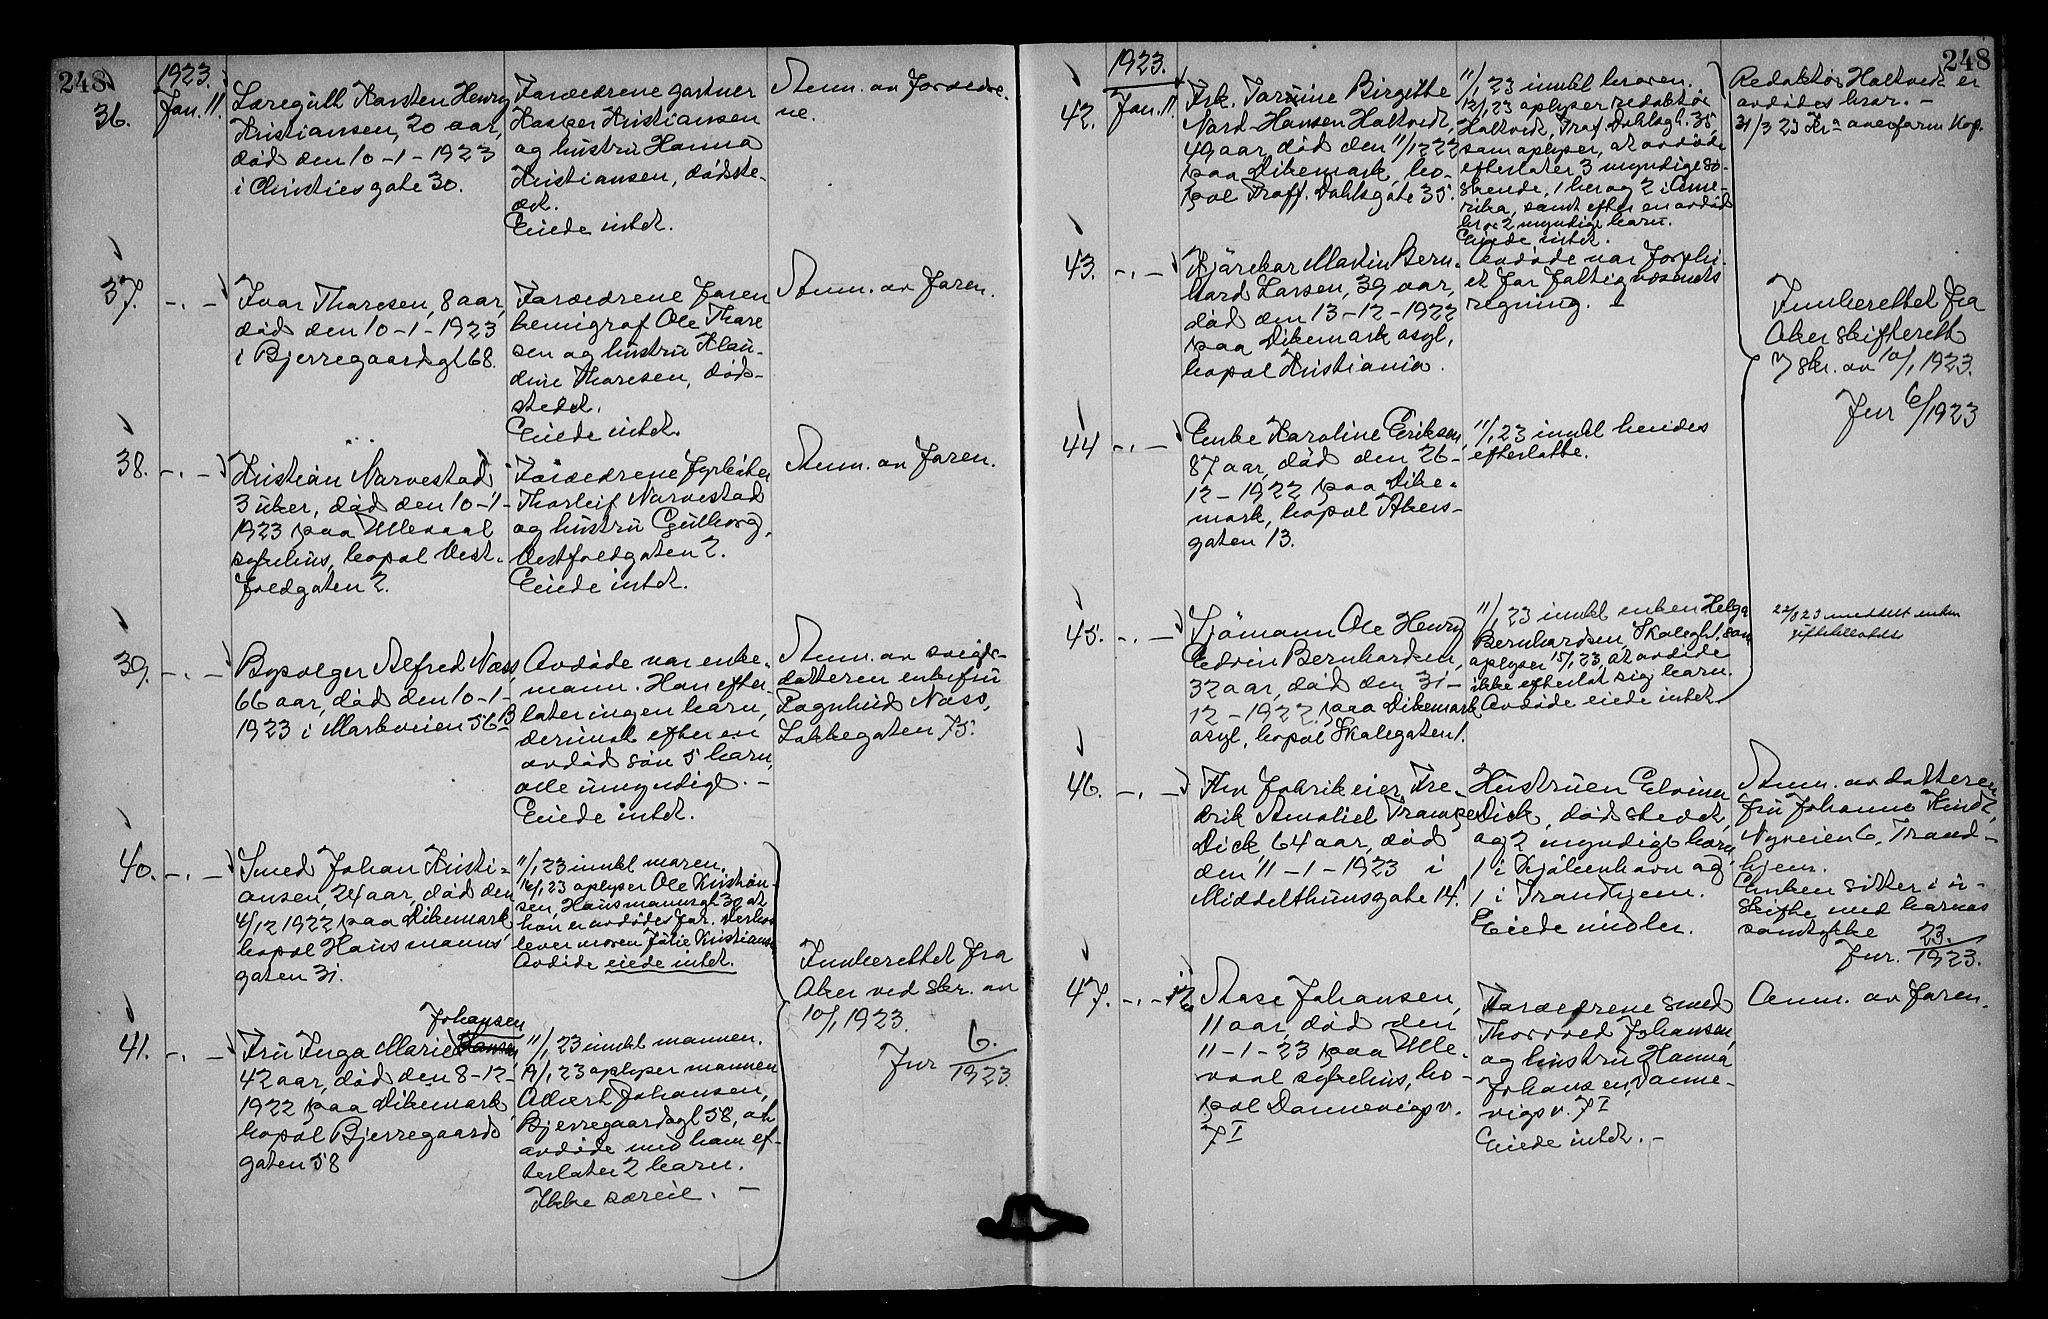 248
1923.
36.
Jan. 11.
Læregutt Karsten Henry
Kristiansen, 20 aar,
død den 10-1-1923
i Christies gate 30.
Forældrene gartner
Kasper Kristiansen
og hustru Hanna
Kristiansen, dødste-
det.
Eiede intet.
Anm. av forældre-
ne.
37.
-"-
Ivar Thoresen, 8 aar,
død den 10-1-1923
i Bjerregaardsgt 68.
Forældrene faren
kemigraf Ole Thore
sen og hustru Klau-
dine Thoresen, døds-
stedet.
Eiede intet.
Anm. av faren.
38.
-"-
Kristian Narvestad
3 uker, død den 10-1-
1923 paa Ullevaal
sykehus, bopæl Vest-
foldgaten 2.
Forældrene fyrbøter
Thorleif Narvestad
og hustru Gulborg,
Vestfoldgaten 2.
Eiede intet.
Anm. av faren.
39.
-"-
Bypleger Alfred Næss,
66 aar, død den 10-1-
1923 i Markveien 56 B
Avdøde var enke-
mann. Han efter-
later ingen barn,
derimot efter en
avdød søn 5 barn,
alle umyndige. -
Eiede intet.
Anm. av sviger-
datteren enkefru
Ragnhild Næss,
Løkkegaten 75.
40.
-"-
Smed Johan Kristi-
ansen, 24 aar, død den
4/12 1922 paa Dikemark
bopæl Hausmanns
gaten 31.
11/1 23 innkl moren.
16/1 23 oplyser Ole Kristian-
sen, Hausmannsgt 30 at
han er avdødes far. Derhos
lever moren Julie Kristiansen
Avdøde eiede intet.
Innberettet fra
Aker ved skr. av
10/1 1923.
Jnr 6./1923.
41.
-"-
Johansen
Fru Inga Marie Hansen
42 aar, død den 8-12-
1922 paa Dikemark
bopæl Bjerregaards
gaten 58
11/1 23 innkl mannen.
19/1 23 oplyser mannen
Albert Johansen,
Bjerregaardsgt 58, at
avdøde med ham ef-
terlater 2 barn.
Ikke særeie. -
248
1923.
42.
Jan. 11.
Frk. Birgithe
Nord-Hansen Holtvedt,
49 aar, død den 11/12 22
paa Dikemark, bo-
pæl Proff. Dahlsgate 35.
11/1 23 innkl broren.
12/1 23 oplyser redaktør
Holtvedt, Prof. Dahlsgt. 35,
som oplyser, at avdøde
efterlater 3 myndige sø-
skende, 1 her og 2 i Ame-
rika, samt efter en avdød
bror 2 myndige barn.
Eiede intet.
Redaktør Holtvedt er
avdødes bror. -
43.
-"-
Kjørekar Martin Bern-
hard Larsen, 39 aar,
død den 13-12-1922
paa Dikemark asyl,
bopæl Kristiania.
Avdøde var forplei-
et for fattigvæsenets
regning.
Innberettet fra
Aker skifterett
v/ skr. av 10/1 1923.
Jnr 6/1923
44
-"-
Enke Karoline Eriksen
87 aar, død den 26-
12-1922 paa Dike-
mark, bopæl Akers-
gaten 13.
11/1 23 innkl hendes
efterlatte.
45.
-"-
Sjømann Ole Henry
Edvin Bernhardsen,
32 aar, død den 31-
12-1922 paa Dikemark
asyl, bopæl Skolegaten 1.
11/1 23 innkl enken Helga
Bernhardsen, Skolegt 1. som
oplyser 15/1 23, at avdøde
ikke efterlot sig barn.
Avdøde eiede intet.
22/8 23 meddelt enken
skifteattest
46.
-"-
Fhv fabrikeier Fre-
drik Amaliel Trampe
Dick 64 aar, død
den 11-1-1923 i
Middelthunsgate 14.
Hustruen Elvina
Dick, dødstedet,
og 2 myndige barn
1 i Kjøbenhavn og
1 i Trondhjem.
Eiede midler.
Anm. av datteren
fru Johanne Hindt,
Nyveien 6, Trond-
hjem.
Enken sitter i u-
skifte med barnas
samtykke
Jnr. 23./1923.
47.
-"- 12
Aase Johansen,
11 aar, død den
11-1-23 paa Ulle-
vaal sykehus, bo-
pæl Dannevigsv.
7 I
Forældrene smed
Thorvald Johansen,
og hustru Hanna
Johansen, Danne-
vigsv. 7 I
Eiede intet. -
Anm. av faren.